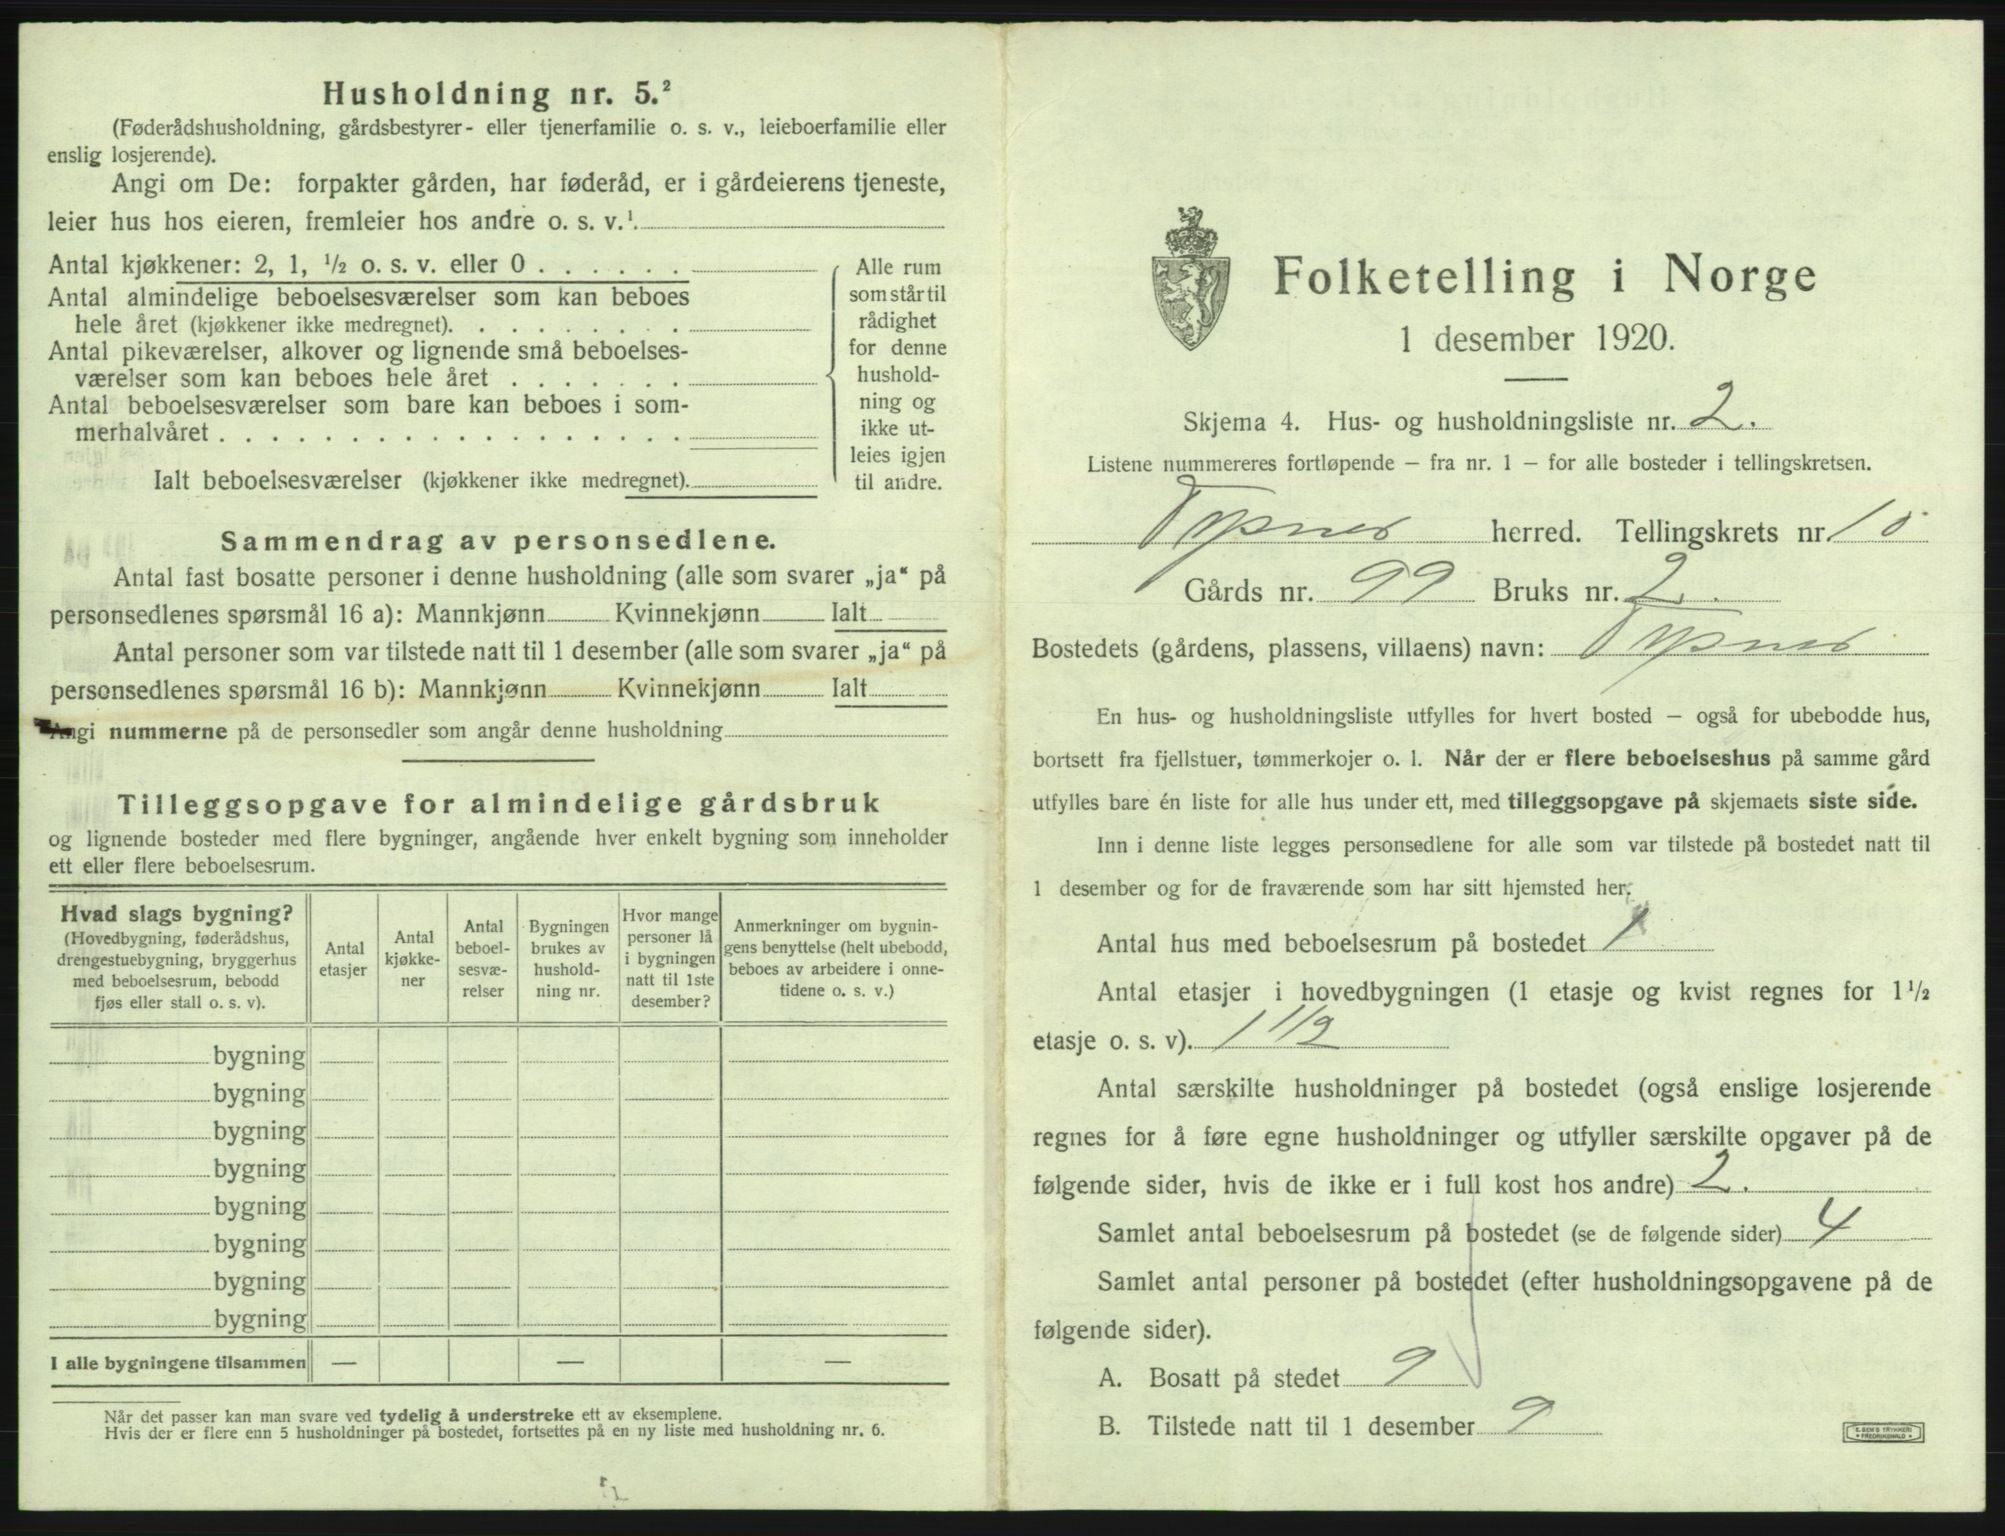 Husholdning nr. 5.²
(Føderådshusholdning, gårdsbestyrer- eller tjenerfamilie o. s. v., leieboerfamilie eller
enslig losjerende).
Angi om De: forpakter gården, har føderåd, er i gårdeierens tjeneste,
leier hus hos eieren, fremleier hos andre o. s. v.¹
Antal kjøkkener: 2, 1, ½ o. s. v. eller 0 . . . . . .
Antal almindelige beboelsesværelser som kan beboes
hele året (kjøkkener ikke medregnet). . . . . . . . .
Antal pikeværelser, alkover og lignende små beboelses-
værelser som kan beboes hele året . . . . . . .
Antal beboelsesværelser som bare kan beboes i som-
merhalvåret . . . . . . . . . . . . . . . . . .
Ialt beboelsesværelser (kjøkkener ikke medregnet).
Alle rum
som står til
rådighet
for denne
hushold-
ning og
ikke ut-
leies igjen
til andre.
Sammendrag av personsedlene.
Antal fast bosatte personer i denne husholdning (alle som svarer „ja“ på
personsedlenes spørsmål 16 a): Mannkjønn Kvinnekjønn Ialt
Antal personer som var tilstede natt til 1 desember (alle som svarer „ja“ på
personsedlenes spørsmål 16 b): Mannkjønn Kvinnekjønn Ialt
Angi nummerne på de personsedler som angår denne husholdning
Tilleggsopgave for almindelige gårdsbruk
og lignende bosteder med flere bygninger, angående hver enkelt bygning som inneholder
ett eller flere beboelsesrum.
Hvad slags bygning?
(Hovedbygning, føderådshus,
drengestuebygning, bryggerhus
med beboelsesrum, bebodd
fjøs eller stall o. s. v).
Antal
etasjer
Antal
kjøkke-
ner
Antal
beboel-
sesvæ-
relser
Bygningen
brukes av
hushold-
ning nr.
Hvor mange
personer lå
i bygningen
natt til 1ste
desember?
Anmerkninger om bygnin-
gens benyttelse (helt ubebodd,
beboes av arbeidere i onne-
tidene o. s. v.)
bygning
bygning
bygning
bygning
bygning
bygning
bygning
bygning
I alle bygningene tilsammen — — —
Når det passer kan man svare ved tydelig å understreke ett av eksemplene.
Hvis der er flere enn 5 husholdninger på bostedet, fortsettes på en ny liste med husholdning nr. 6.
Folketelling i Norge
1 desember 1920.
Skjema 4. Hus- og husholdningsliste nr. 2.
Listene nummereres fortløpende – fra nr. 1 – for alle bosteder i tellingskretsen.
Tysnes herred. Tellingskrets nr. 10
Gårds nr. 99 Bruks nr. 2.
Bostedets (gårdens, plassens, villaens) navn: Tysnes
En hus- og husholdningsliste utfylles for hvert bosted – også for ubebodde hus,
bortsett fra fjellstuer, tømmerkojer o. l. Når der er flere beboelseshus på samme gård
utfylles bare én liste for alle hus under ett, med tilleggsopgave på skjemaets siste side.
Inn i denne liste legges personsedlene for alle som var tilstede på bostedet natt til
1 desember og for de fraværende som har sitt hjemsted her.
Antal hus med beboelsesrum på bostedet 1
Antal etasjer i hovedbygningen (1 etasje og kvist regnes for 1½
etasje o. s. v). 1 1/2
Antal særskilte husholdninger på bostedet (også enslige losjerende
regnes for å føre egne husholdninger og utfyller særskilte opgaver på de
følgende sider, hvis de ikke er i full kost hos andre) 2.
Samlet antal beboelsesrum på bostedet (se de følgende sider) 4
Samlet antal personer på bostedet (efter husholdningsopgavene på de
følgende sider).
A. Bosatt på stedet 9
B. Tilstede natt til 1 desember 9